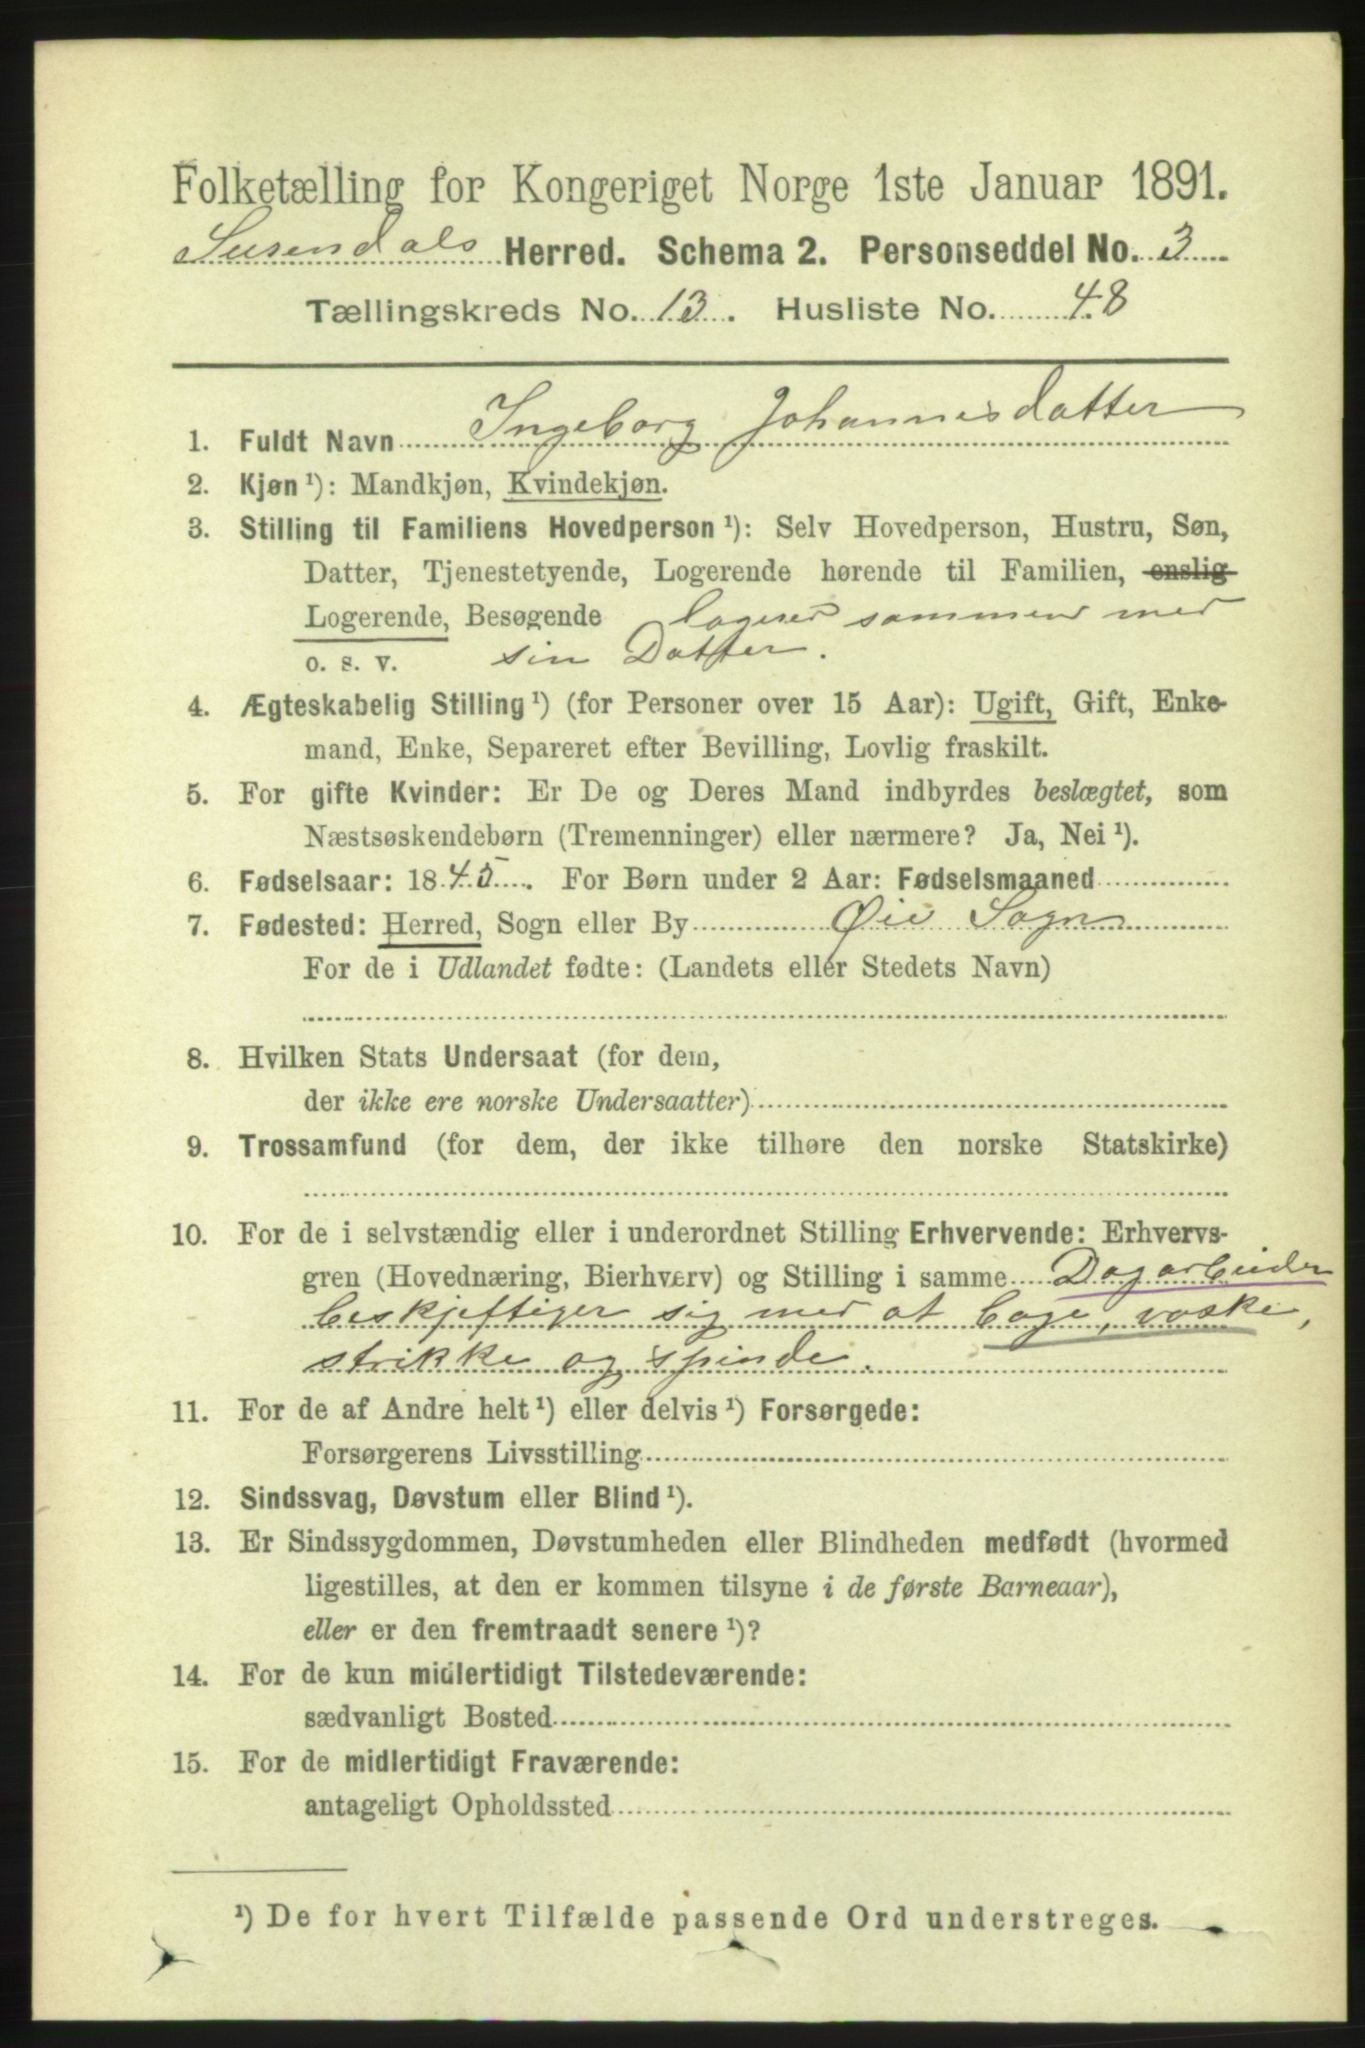 Folketælling for Kongeriget Norge 1ste Januar 1891.
Surendals Herred. Schema 2. Personseddel No. 3
Tællingskreds No. 13. Husliste No. 48
1. Fuldt Navn Ingeborg Johannesdatter
2. Kjøn ¹): Mandkjøn, Kvindekjøn.
3. Stilling til Familiens Hovedperson ¹): Selv Hovedperson, Hustru, Søn,
Datter, Tjenestetyende, Logerende hørende til Familien, enslig
Logerende, Besøgende logerer sammen med
o. s. v. sin Datter.
4. Ægteskabelig Stilling ¹) (for Personer over 15 Aar): Ugift, Gift, Enke-
mand, Enke, Separeret efter Bevilling, Lovlig fraskilt.
5. For gifte Kvinder: Er De og Deres Mand indbyrdes beslægtet, som
Næstsøskendebørn (Tremenninger) eller nærmere? Ja, Nei ¹).
6. Fødselsaar: 1845. For Børn under 2 Aar: Fødselsmaaned
7. Fødested: Herred, Sogn eller By Øie Sogn
For de i Udlandet fødte: (Landets eller Stedets Navn)
8. Hvilken Stats Undersaat (for dem,
der ikke ere norske Undersaatter)
9. Trossamfund (for dem, der ikke tilhøre den norske Statskirke)
10. For de i selvstændig eller i underordnet Stilling Erhvervende: Erhvervs-
gren (Hovednæring, Bierhverv) og Stilling i samme Dagarbeider
beskjeftiger sig med at bage, vaske,
strikke og spinde.
11. For de af Andre helt ¹) eller delvis ¹) Forsørgede:
Forsørgerens Livsstilling
12. Sindssvag, Døvstum eller Blind ¹).
13. Er Sindssygdommen, Døvstumheden eller Blindheden medfødt (hvormed
ligestilles, at den er kommen tilsyne i de første Barneaar),
eller er den fremtraadt senere ¹)?
14. For de kun midlertidigt Tilstedeværende:
sædvanligt Bosted
15. For de midlertidigt Fraværende:
antageligt Opholdssted
¹) De for hvert Tilfælde passende Ord understreges.